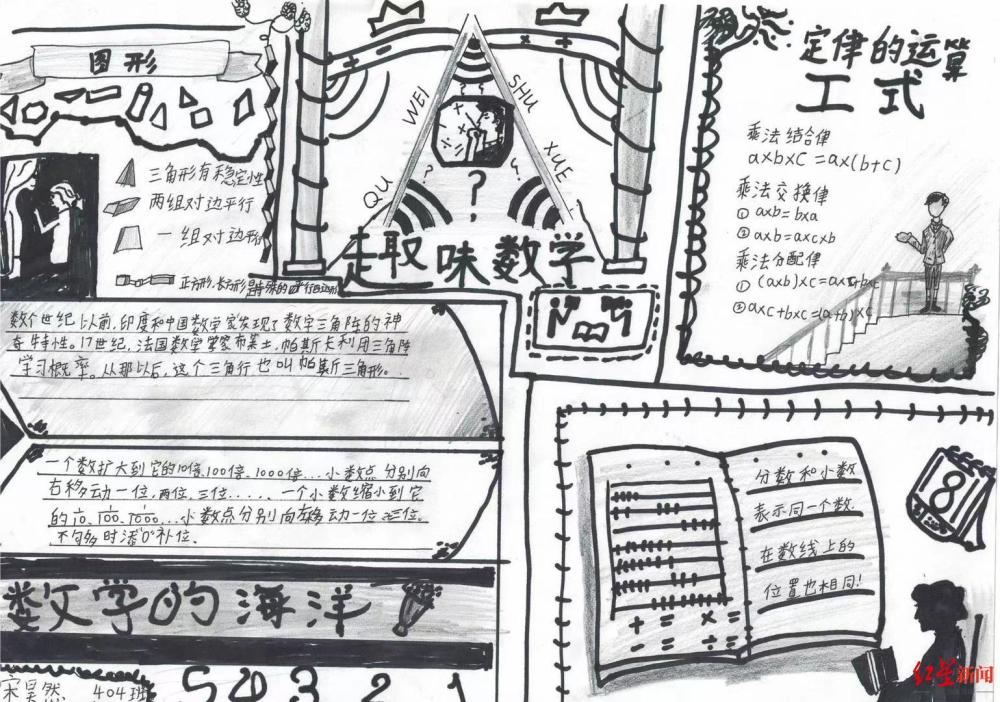 图形
三角形有稳定性
两组对边平行
一组对边平行
正方形,长方形是特殊的平行四边形
QU WEI SHU XUE
? ? ?
趣味数学
定律的运算
工式
乘法结合律
a×b×c=a×(b+c)
乘法交换律
① a×b=b×a
② a×b=a×c×b
乘法分配律
① (ab)×c=
② a×c+b×c=(a+b)×c
数个世纪以前,印度和中国数学家发现了数字三角阵的神
奇特性。17世纪,法国数学家布莱士,帕斯长利用三角阵
学习概率。从那以后,这个三角行也叫帕斯三角形。
一个数扩大到它的10倍、100倍、1000倍...小数点分别向
右移动一位,两位,三位.....一个小数缩小到它
的1/10、1/100、1/1000...小数点分别向左移动一位
不句多时添"0"补位.
数学的海洋
宋昊然 404班
5 0 3 2 1
分数和小数
表示同一个数.
在数线上的
位置也相同!
+ = × =
- = ÷ =
8
红星新闻